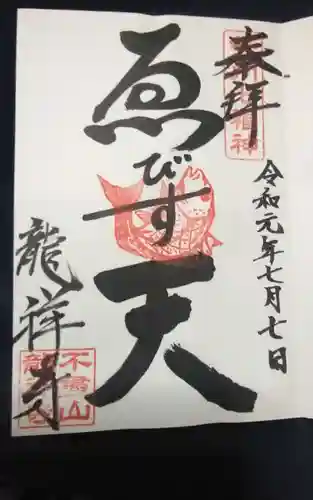 奉拝
令和元年七月七日
ゑびす天
龍祥寺
不濡山